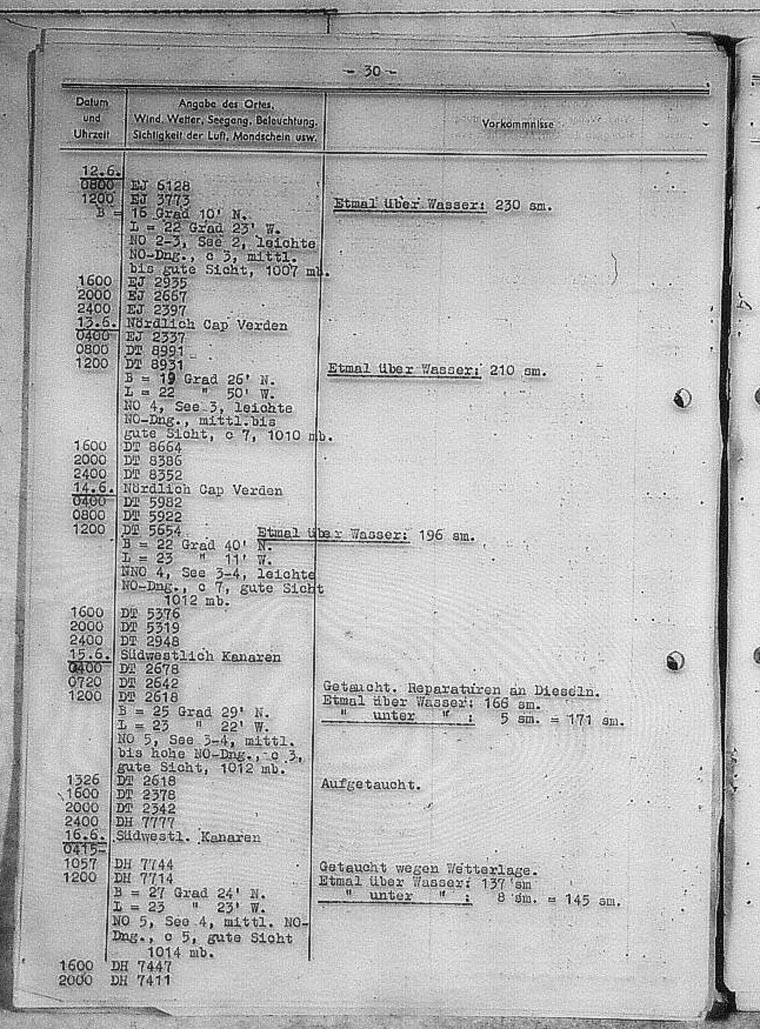 - 30 -
Datum und Uhrzeit
Angabe des Ortes, Wind, Wetter, Seegang, Beleuchtung, Sichtigkeit der Luft, Mondschein usw.
Vorkommnisse
12.6.
0800 EJ 6128
1200 EJ 3773 Etmal über Wasser: 230 sm.
B = 16 Grad 10' N.
L = 22 Grad 23' W.
NO 2-3, See 2, leichte
NO-Dng., c 3, mittl.
bis gute Sicht, 1007 mb.
1600 EJ 2935
2000 EJ 2667
2400 EJ 2397
13.6. Nördlich Cap Verden
0400 EJ 2337
0800 DT 8991
1200 DT 8931 Etmal über Wasser: 210 sm.
B = 19 Grad 26' N.
L = 22 " 50' W.
NO 4, See 3, leichte
NO-Dng., mittl.bis
gute Sicht, c 7, 1010 mb.
1600 DT 8664
2000 DT 8386
2400 DT 8352
14.6. Nördlich Cap Verden
0400 DT 5982
0800 DT 5922
1200 DT 5654 Etmal über Wasser: 196 sm.
B = 22 Grad 40' N.
L = 23 " 11' W.
NNO 4, See 3-4, leichte
NO-Dng., c 7, gute Sicht
1012 mb.
1600 DT 5376
2000 DT 5319
2400 DT 2948
15.6. Südwestlich Kanaren
0400 DT 2678
0720 DT 2642 Getaucht. Reparaturen an Dieseln.
1200 DT 2618 Etmal über Wasser: 166 sm.
B = 25 Grad 29' N. " unter " : 5 sm. = 171 sm.
L = 23 " 22' W.
NO 5, See 3-4, mittl.
bis hohe NO-Dng., c 3,
gute Sicht, 1012 mb.
1326 DT 2618 Aufgetaucht.
1600 DT 2378
2000 DT 2342
2400 DH 7777
16.6. Südwestl. Kanaren
0415-
1057 DH 7744 Getaucht wegen Wetterlage.
1200 DH 7714 Etmal über Wasser: 137 sm
B = 27 Grad 24' N. " unter " : 8 sm. = 145 sm.
L = 23 " 23' W.
NO 5, See 4, mittl. NO-
Dng., c 5, gute Sicht
1014 mb.
1600 DH 7447
2000 DH 7411